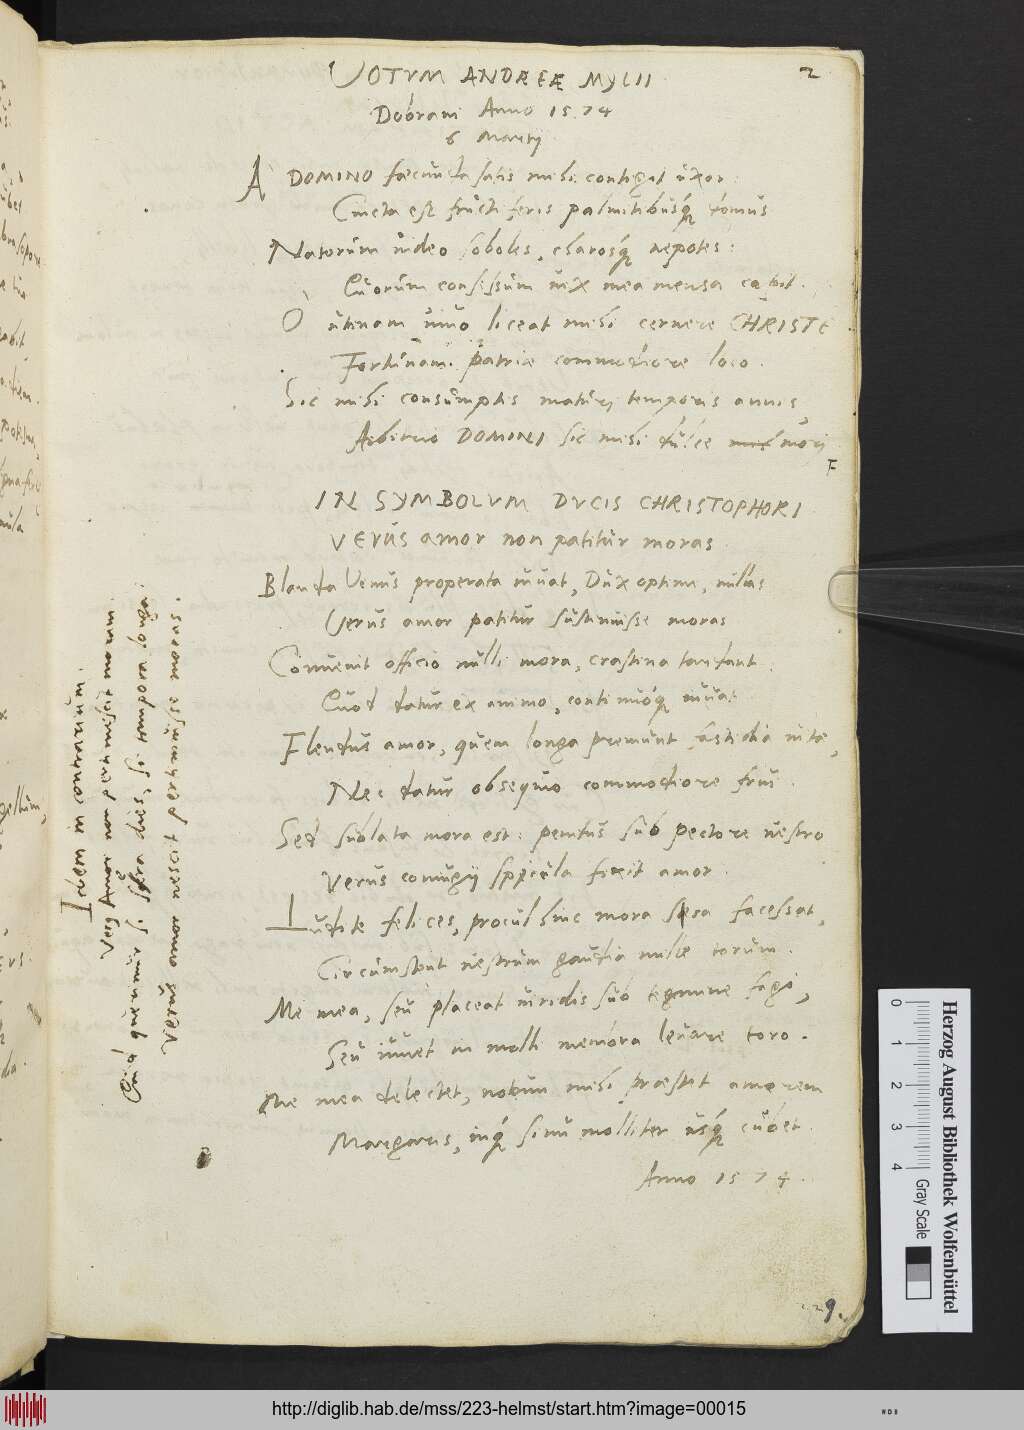 2
VOTVM ANDREÆ MYLII
Dobrani Anno 1574
6 Martij
A DOMINO fæcunda satis mihi contigit uxor:
Cincta est fructiferis palmitibusq́ domus
Natorum uideo soboles, clarosq́ nepotes:
Quorum consessum uix mea mensa capit.
O utinam uiuo liceat mihi cernere CHRISTE
Fortunam patriæ commodiore loco.
Sic mihi consumptis maturi temporis annis,
Arbitrio DOMINI sic mihi dulce mori
F
IN SYMBOLVM DVCIS CHRISTOPHORI
VERUS amor non patitur moras
Blanda Venus properata iuuat, Dux optime, nullas
Verus amor patitur sustinuisse moras
Conuenit officio nulli mora, crastina tardant
Quod datur ex animo, continuoq́ iuuat
Flendus amor, quem longa premunt fastidia uitæ,
Nec datur obsequio commodiore frui.
Sed sublata mora est: penitus sub pectore uestro
Verus coniugij spicula fixit amor.
Ludite felices, procul hinc mora sera facessat,
Circumstent uestrum gaudia mille torum.
Me mea, seu placeat uiridis sub tegmine fagi,
Seu iuuet in molli membra leuare toro.
Me mea delectet, notum mihi præstet amorem
Margaris, inq́ sinu molliter usq́ cubet
Anno 1574.
Idem in contrariam
Verus amor nescit properatas moras
29.
Herzog August Bibliothek Wolfenbüttel
Gray Scale
0 1 2 3 4
http://diglib.hab.de/mss/223-helmst/start.htm?image=00015